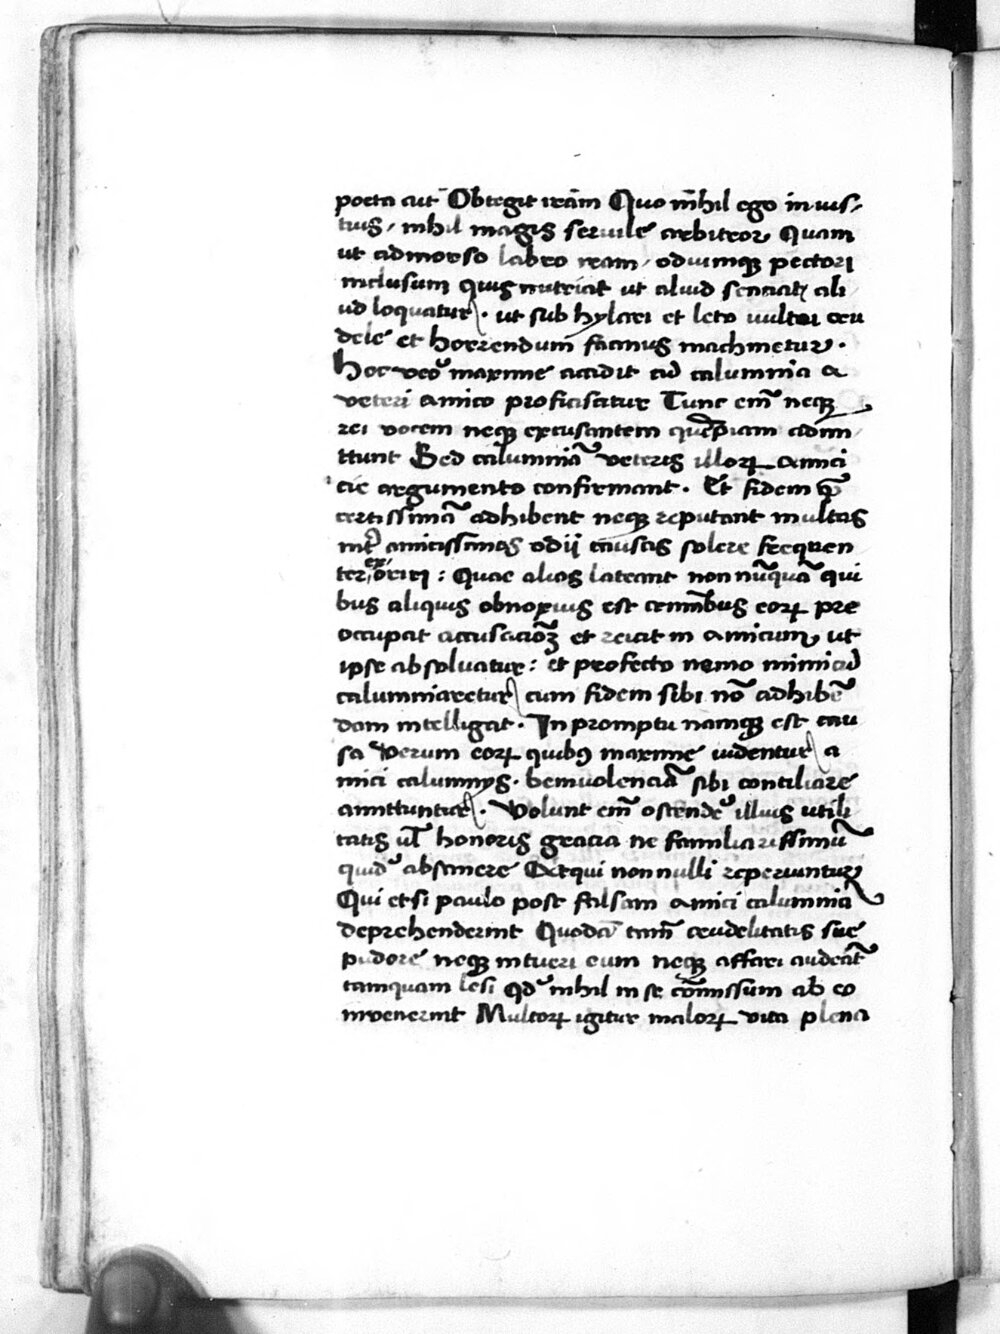 poeta aut̄ Obtegit irām Quo nīhil ego inius⸗
tius, nihil magis seruile arbitror, Quam
ut admorso labro iram, odiumqꝫ pectori
inclusum quis nutriat ut aliud sentiat, ali
ud loquatur. ut sub hylari et leto uultu cru
dele et horrendum facinus machinetur.
Hoc uēo maxime accidit cū calumnia a
veteri amico proficiscitur Tunc em̄ neqꝫ
rei vocem neqꝫ excusantem quēpiam admi
ttunt Sed calumniā veteris illoꝝ amici
cie argumento confirmant. Et fidem
certissimā adhibent neqꝫ reputant multas
int̄ amicissimos odij causas solere frequen
ter exoriri: Quae alios lateant non nūquā qui
bus aliquis obnoxius est criminībus eoꝝ pre
occupat accusacioēꝫ et reicit in amicum, ut
ipse absoluatur: et profecto nemo inimicū
calumniaretur cum fidem sibi nō adhibē
dam intelligat. In promptu namqꝫ est cau
sa Verum eoꝝ quibꝰ maxime uidentur a
mici calumnijs. beniuolenciā sibi conciliare
annittuntur. Volunt em̄ ostendē illius utili
tatis ul̄ honoris gracia ne familiarissimū
quid̄ abstinere Atqui nonnulli reperiuntur
Qui etsi paulo post falsam amici calumniā
deprehenderint Quodā tam̄ crudelitatis sue
pudore neqꝫ intueri eum neqꝫ affari audeāt
tamquam lesi qđ nihil in se cōmissum ab eo
inuenerint Multoꝝ igitur maloꝝ vita plena